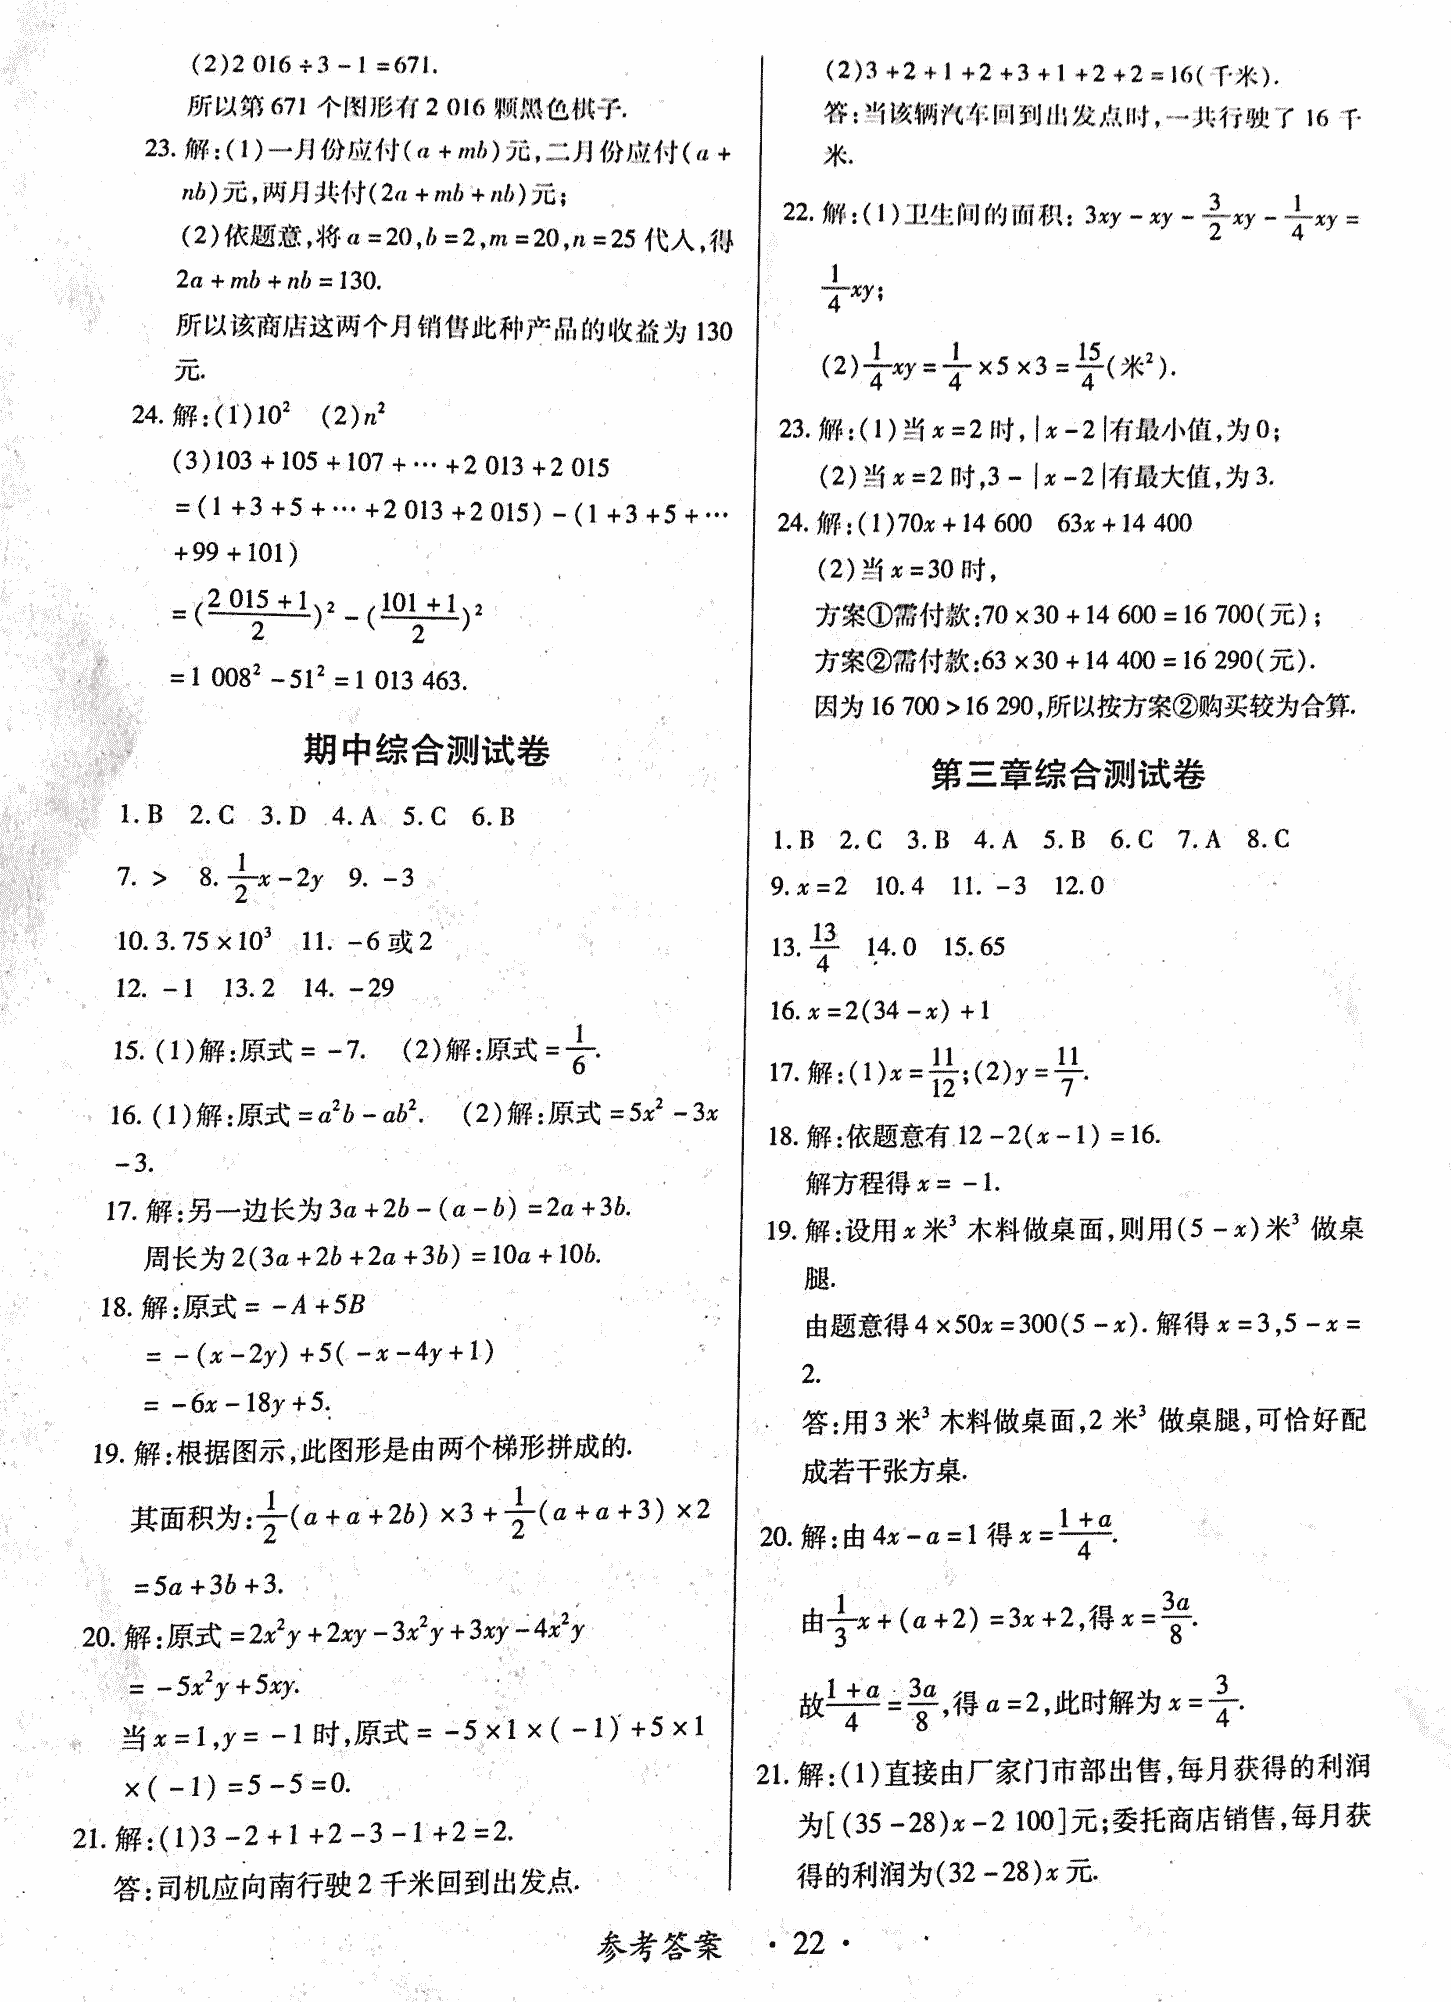 (2)2 016÷3-1=671.
所以第671个图形有2 016颗黑色棋子.
23.解:(1)一月份应付(a+mb)元,二月份应付(a+
nb)元,两月共付(2a+mb+nb)元;
(2)依题意,将a=20,b=2,m=20,n=25代人,得
2a+mb+nb=130.
所以该商店这两个月销售此种产品的收益为130
元.
24.解:(1)10² (2)n²
(3)103+105+107+…+2 013+2 015
=(1+3+5+…+2 013+2 015)-(1+3+5+…
+99+101)
=(\frac{2 015+1}{2})²-(\frac{101+1}{2})²
=1 008²-51²=1 013 463.
期中综合测试卷
1.B 2.C 3.D 4.A 5.C 6.B
7. > 8.\frac{1}{2}x-2y 9. -3
10.3.75×10³ 11. -6或2
12. -1 13.2 14. -29
15.(1)解:原式=-7. (2)解:原式=\frac{1}{6}.
16.(1)解:原式=a²b-ab². (2)解:原式=5x²-3x
-3.
17.解:另一边长为3a+2b-(a-b)=2a+3b.
周长为2(3a+2b+2a+3b)=10a+10b.
18.解:原式=-A+5B
=-(x-2y)+5(-x-4y+1)
=-6x-18y+5.
19.解:根据图示,此图形是由两个梯形拼成的.
其面积为:\frac{1}{2}(a+a+2b)×3+\frac{1}{2}(a+a+3)×2
=5a+3b+3.
20.解:原式=2x²y+2xy-3x²y+3xy-4x²y
=-5x²y+5xy.
当x=1,y=-1时,原式=-5×1×(-1)+5×1
×(-1)=5-5=0.
21.解:(1)3-2+1+2-3-1+2=2.
答:司机应向南行驶2千米回到出发点.
(2)3+2+1+2+3+1+2+2=16(千米).
答:当该辆汽车回到出发点时,一共行驶了16千
米.
22.解:(1)卫生间的面积:3xy-xy-\frac{3}{2}xy-\frac{1}{4}xy=
\frac{1}{4}xy;
(2)\frac{1}{4}xy=\frac{1}{4}×5×3=\frac{15}{4}(米²).
23.解:(1)当x=2时,|x-2|有最小值,为0;
(2)当x=2时,3-|x-2|有最大值,为3.
24.解:(1)70x+14 600 63x+14 400
(2)当x=30时,
方案①需付款:70×30+14 600=16 700(元);
方案②需付款:63×30+14 400=16 290(元).
因为16 700>16 290,所以按方案②购买较为合算.
第三章综合测试卷
1.B 2.C 3.B 4.A 5.B 6.C 7.A 8.C
9.x=2 10.4 11. -3 12.0
13.\frac{13}{4} 14.0 15.65
16.x=2(34-x)+1
17.解:(1)x=\frac{11}{12};(2)y=\frac{11}{7}.
18.解:依题意有12-2(x-1)=16.
解方程得x=-1.
19.解:设用x米³木料做桌面,则用(5-x)米³做桌
腿.
由题意得4×50x=300(5-x).解得x=3,5-x=
2.
答:用3米³木料做桌面,2米³做桌腿,可恰好配
成若干张方桌.
20.解:由4x-a=1得x=\frac{1+a}{4}.
由\frac{1}{3}x+(a+2)=3x+2,得x=\frac{3a}{8}.
故\frac{1+a}{4}=\frac{3a}{8},得a=2,此时解为x=\frac{3}{4}.
21.解:(1)直接由厂家门市部出售,每月获得的利润
为[(35-28)x-2 100]元;委托商店销售,每月获
得的利润为(32-28)x元.
参考答案 ·22·